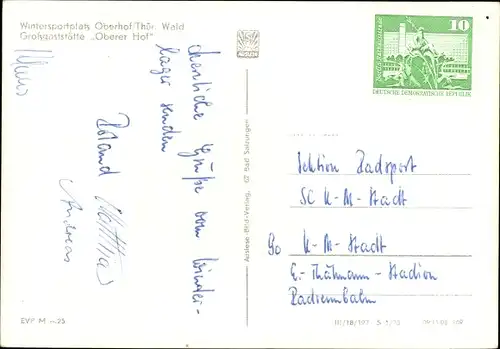 Wintersportplatz Oberhof/Thür. Wald
Großgaststätte „Oberer Hof"
Herzliche Grüße vom Winter-
lager senden
Klaus
Roland
Matthias
Andreas
Auslese-Bild-Verlag, Bad Salzungen
EVP M -.25
10
DEUTSCHE DEMOKRATISCHE REPUBLIK
Sektion Radsport
SC K-M-Stadt
90 K-M-Stadt
E.-Thälmann-Stadion
Radrennbahn
III/18/197